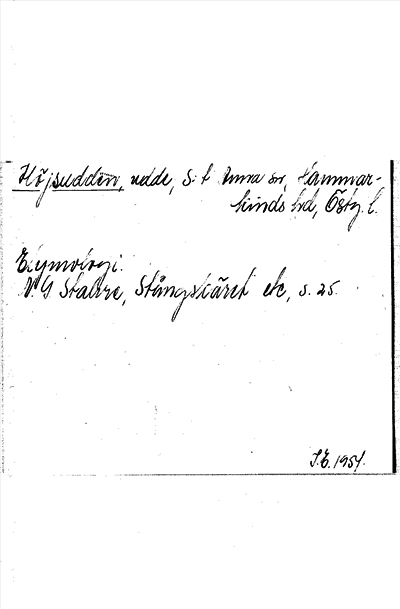 Höjsudden, udde, S:t Anna sn, Hammar-
kinds hd, Östg. l.
Etymologi.
N G Stahre, Stångskäret etc, s. 25.
S.E. 1951.